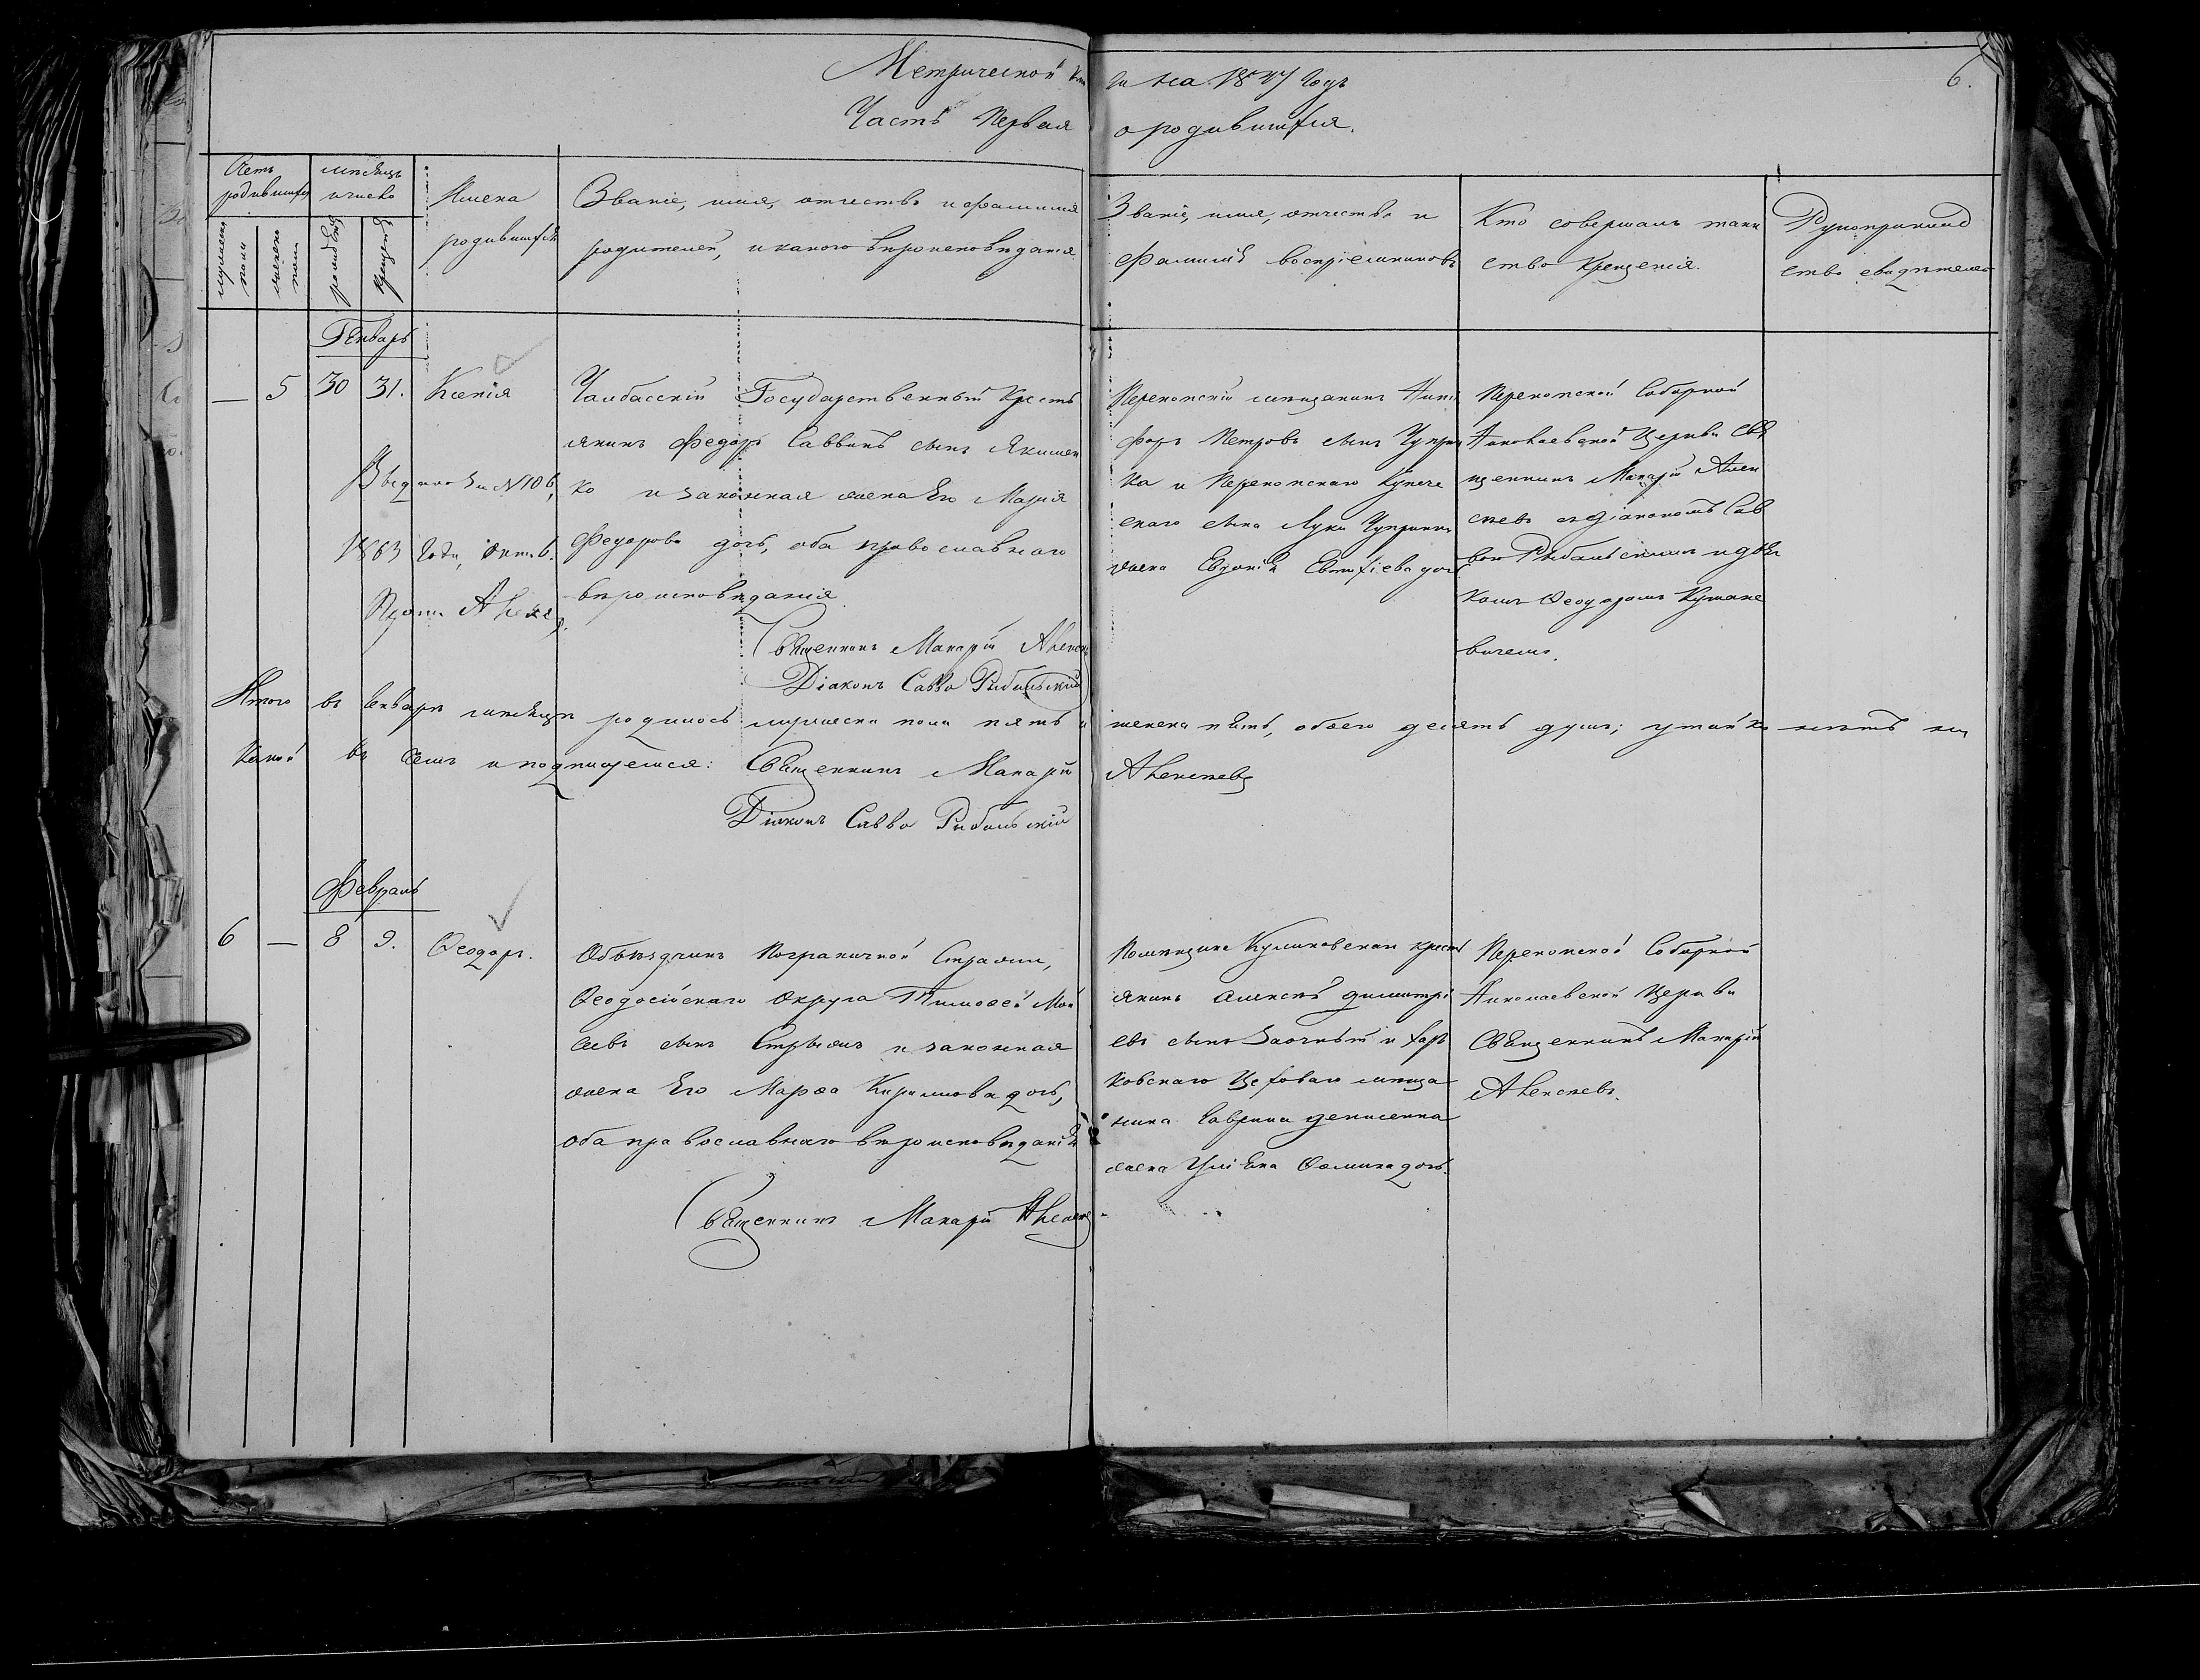 Метрической книги на 1847 годъ
6.
Часть Первая о родившихся.
Счетъ родившихся
мужеска пола
женска пола
месяцъ и число
рождения
крещенiя
Имена
родившихся
Званiе, имя, отчество и фамилия
родителей, и какого вероисповеданiя
Званiе, имя, отчество и
фамилiя воспрiемниковъ
Кто совершалъ таин
ство крещенiя.
Рукоприклад
ство свидетелей
Генварь
— 5 30 31. Ксенiя
Чалбасскiй Государственный Кресть
янинъ Федоръ Саввинъ сынъ Якимен
ко и законная жена Его Марiя
Федорова дочь, оба православнаго
вероисповеданiя
Священникъ Макарiй Алексеевъ
Дiаконъ Савва Рибальскiй
Выдано за №106,
1863 года, Октяб.
Прот. Алексе
Перекопскiй мещанинъ Ники
форъ Петровъ сынъ Чуприн
ка и Перекопскаго Купече
скаго сына Луки Чупринки
жена Евдокiя дочь
Перекопской Соборной
Николаевской Церкви Свя
щенникъ Макарiй Алек
сеевъ съ дiакономъ Сав
вою Рыбальскимъ и дьяч
комъ Феодоромъ Кумане
вичемъ.
Итого въ Генваре месяце родилось мужеска пола пять и женска пять, обоего десять душъ; утайки нетъ ни
какой въ чемъ и подпишемся: Священникъ Макарiй Алексеевъ
Дiаконъ Савва Рибальскiй
Февраль
6 — 8 9. Ѳеодоръ.
Объездчикъ Пограничной Стражи,
Ѳеодосiйскаго Округа Тимоѳей Мои
сеевъ сынъ и законная
жена Его Марѳа Кирилова дочь,
оба православнаго вероисповеданiя
Священникъ Макарiй Алексеевъ
Помещика Куликовскаго Кресть
янинъ Алексей Димитрi
евъ сынъ Заочный и Харь
ковскаго Цеховаго меща
нина Гаврила Денисенка
жена Улiяна Ѳомина дочь.
Перекопской Соборной
Николаевской Церкви
Священникъ Макарiй
Алексеевъ.